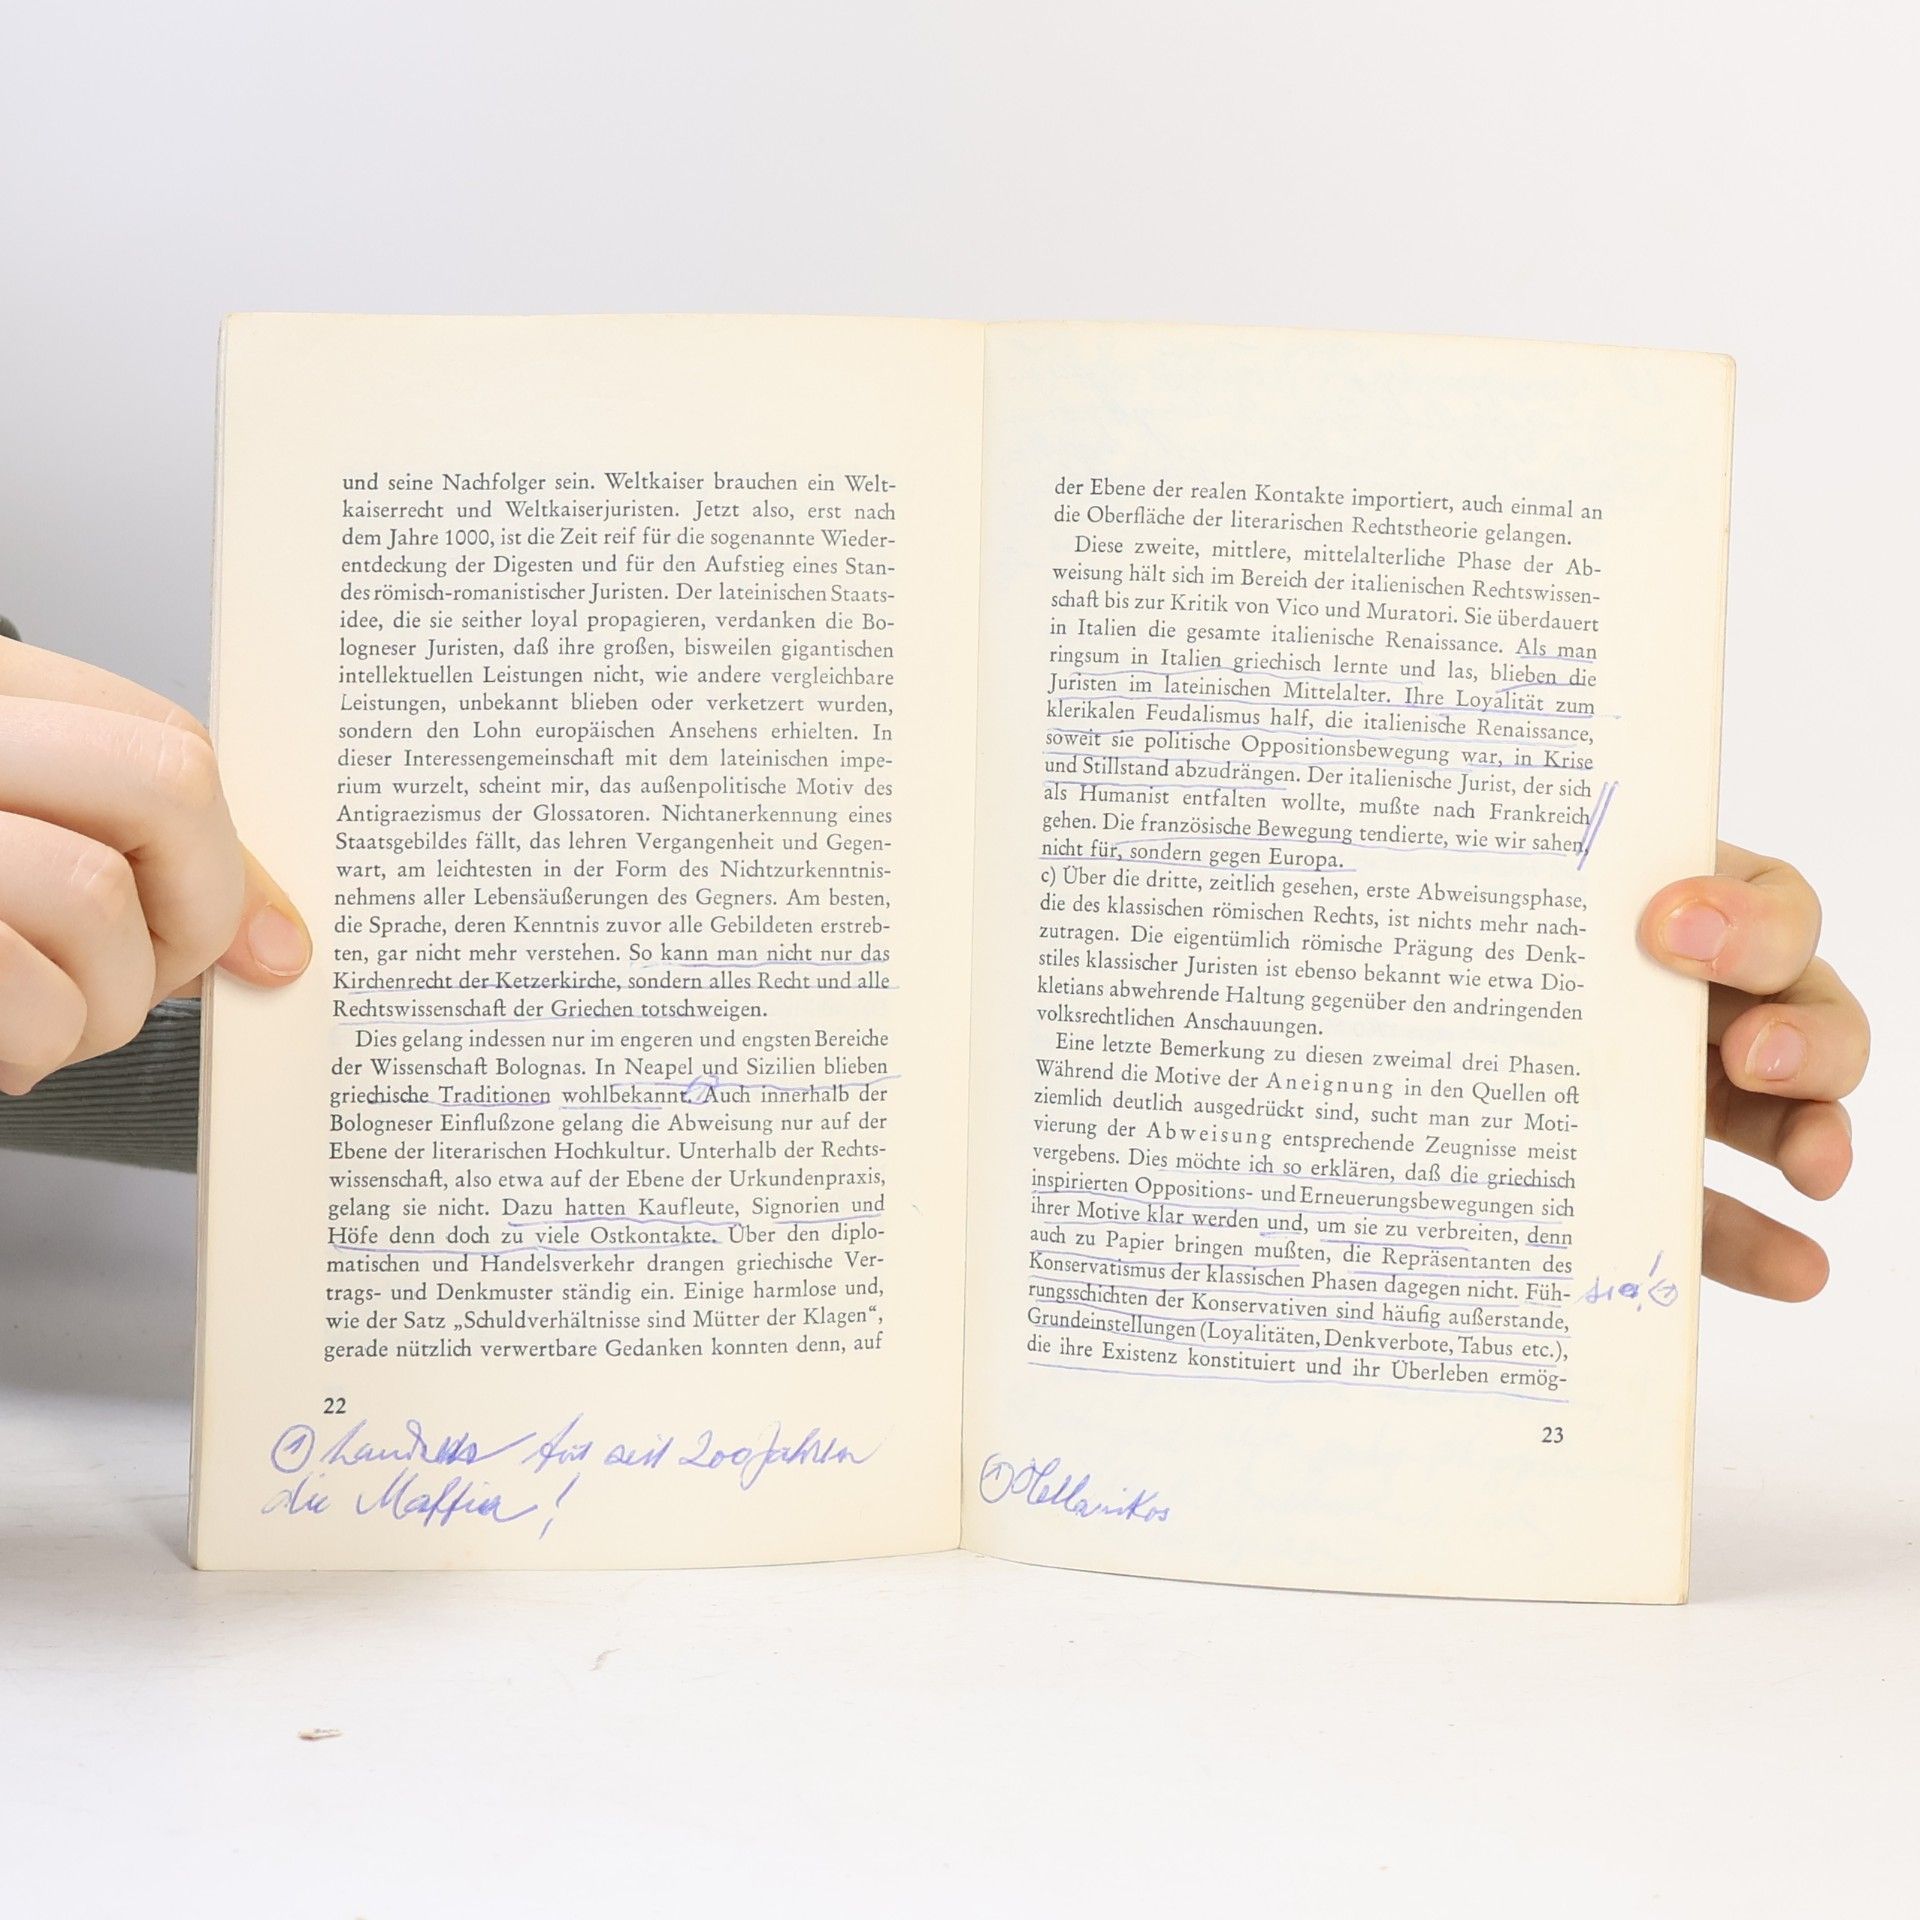 und seine Nachfolger sein. Weltkaiser brauchen ein Welt-
kaiserrecht und Weltkaiserjuristen. Jetzt also, erst nach
dem Jahre 1000, ist die Zeit reif für die sogenannte Wieder-
entdeckung der Digesten und für den Aufstieg eines Stan-
des römisch-romanistischer Juristen. Der lateinischen Staats-
idee, die sie seither loyal propagieren, verdanken die Bo-
logneser Juristen, daß ihre großen, bisweilen gigantischen
intellektuellen Leistungen nicht, wie andere vergleichbare
Leistungen, unbekannt blieben oder verketzert wurden,
sondern den Lohn europäischen Ansehens erhielten. In
dieser Interessengemeinschaft mit dem lateinischen impe-
rium wurzelt, scheint mir, das außenpolitische Motiv des
Antigraezismus der Glossatoren. Nichtanerkennung eines
Staatsgebildes fällt, das lehren Vergangenheit und Gegen-
wart, am leichtesten in der Form des Nichtzurkenntnis-
nehmens aller Lebensäußerungen des Gegners. Am besten,
die Sprache, deren Kenntnis zuvor alle Gebildeten erstreb-
ten, gar nicht mehr verstehen. So kann man nicht nur das
Kirchenrecht der Ketzerkirche, sondern alles Recht und alle
Rechtswissenschaft der Griechen totschweigen.
Dies gelang indessen nur im engeren und engsten Bereiche
der Wissenschaft Bolognas. In Neapel und Sizilien blieben
griechische Traditionen wohlbekannt. Auch innerhalb der
Bologneser Einflußzone gelang die Abweisung nur auf der
Ebene der literarischen Hochkultur. Unterhalb der Rechts-
wissenschaft, also etwa auf der Ebene der Urkundenpraxis,
gelang sie nicht. Dazu hatten Kaufleute, Signorien und
Höfe denn doch zu viele Ostkontakte. Über den diplo-
matischen und Handelsverkehr drangen griechische Ver-
trags- und Denkmuster ständig ein. Einige harmlose und,
wie der Satz „Schuldverhältnisse sind Mütter der Klagen“,
gerade nützlich verwertbare Gedanken konnten denn, auf
22
① seit 200 Jahren
die Maffia!
der Ebene der realen Kontakte importiert, auch einmal an
die Oberfläche der literarischen Rechtstheorie gelangen.
Diese zweite, mittlere, mittelalterliche Phase der Ab-
weisung hält sich im Bereich der italienischen Rechtswissen-
schaft bis zur Kritik von Vico und Muratori. Sie überdauert
in Italien die gesamte italienische Renaissance. Als man
ringsum in Italien griechisch lernte und las, blieben die
Juristen im lateinischen Mittelalter. Ihre Loyalität zum
klerikalen Feudalismus half, die italienische Renaissance,
soweit sie politische Oppositionsbewegung war, in Krise
und Stillstand abzudrängen. Der italienische Jurist, der sich
als Humanist entfalten wollte, mußte nach Frankreich
gehen. Die französische Bewegung tendierte, wie wir sahen,
nicht für, sondern gegen Europa.
c) Über die dritte, zeitlich gesehen, erste Abweisungsphase,
die des klassischen römischen Rechts, ist nichts mehr nach-
zutragen. Die eigentümlich römische Prägung des Denk-
stiles klassischer Juristen ist ebenso bekannt wie etwa Dio-
kletians abwehrende Haltung gegenüber den andringenden
volksrechtlichen Anschauungen.
Eine letzte Bemerkung zu diesen zweimal drei Phasen.
Während die Motive der Aneignung in den Quellen oft
ziemlich deutlich ausgedrückt sind, sucht man zur Moti-
vierung der Abweisung entsprechende Zeugnisse meist
vergebens. Dies möchte ich so erklären, daß die griechisch
inspirierten Oppositions- und Erneuerungsbewegungen sich
ihrer Motive klar werden und, um sie zu verbreiten, denn
auch zu Papier bringen mußten, die Repräsentanten des
Konservatismus der klassischen Phasen dagegen nicht. Füh-
rungsschichten der Konservativen sind häufig außerstande,
Grundeinstellungen (Loyalitäten, Denkverbote, Tabus etc.),
die ihre Existenz konstituiert und ihr Überleben ermög-
23
① Hellanikos